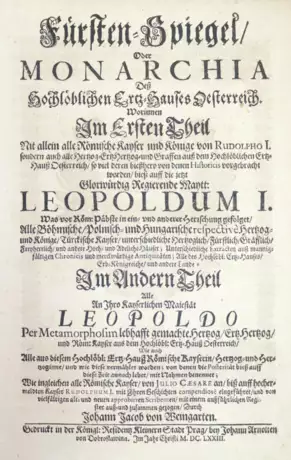 Fürsten-Spiegel/
Oder
MONARCHIA
Deß
Hochlöblichen Ertz-Hauses Oesterreich.
Worinnen
Im Ersten Theil
Nit allein alle Römische Kayser und Könige von RUDOLPHO I.
sondern auch alle Hertzog-ErtzHertzog- und Graffen auß dem Hochlöblichen Ertz-
Hauß Oesterreich/ so viel deren bißhero von denen Historicis vorgebracht
worden/ biß auff die jetzt
Glorwürdig Regierende Mayst:
LEOPOLDUM I.
Was vor Röm: Päbste in ein- und anderer Herrschung gefolget/
Alle Böhmische/ Polnisch- und Hungarische respective Hertzog-
und Könige/ Türckische Kayser/ unterschiedliche Hertzoglich/ Fürstlich/ Gräfflich/
Freyherrlich/ und andere Hoch- und Adeliche Häuser/
fältigen Chronicis und Antiquitäten/
Im Andern Theil
Alle
An Ihro Kayserlichen Maiestät
LEOPOLDO
Per Metamorphosim lebhafft gemachte Hertzog/ Ertz-Hertzog/
und Röm: Kayser auß dem Hochlöbl: Ertz-Hauß Oesterreich/
Wie auch
Alle auß diesem Hochlöbl: Ertz-Hauß Römische Kayserin/ Hertzog- und Her-
zoginne/ und wie diese vermählet worden/ von denen die Posterität biß auff
diese Zeit
Wie ingleichen alle Römische Kayser/ von JULIO CÆSARE an/ biß auff hocher-
meldten Kayser RUDOLPHUM I. mit ihren Geschichten compendiosè eingeführet/ und von
vielfältigen alt- und neuen approbirten Scribenten/ mit einem außführlichen Regi-
ster auß- und zusammen gezogen/ Durch
Johann Jacob von Weingarten.
Gedruckt in der Königl: Residentz Kleinern Stadt Prag/ bey Johann Arnolten
von Dobroslawina. Im Jahr Christi M DC. LXXIII.